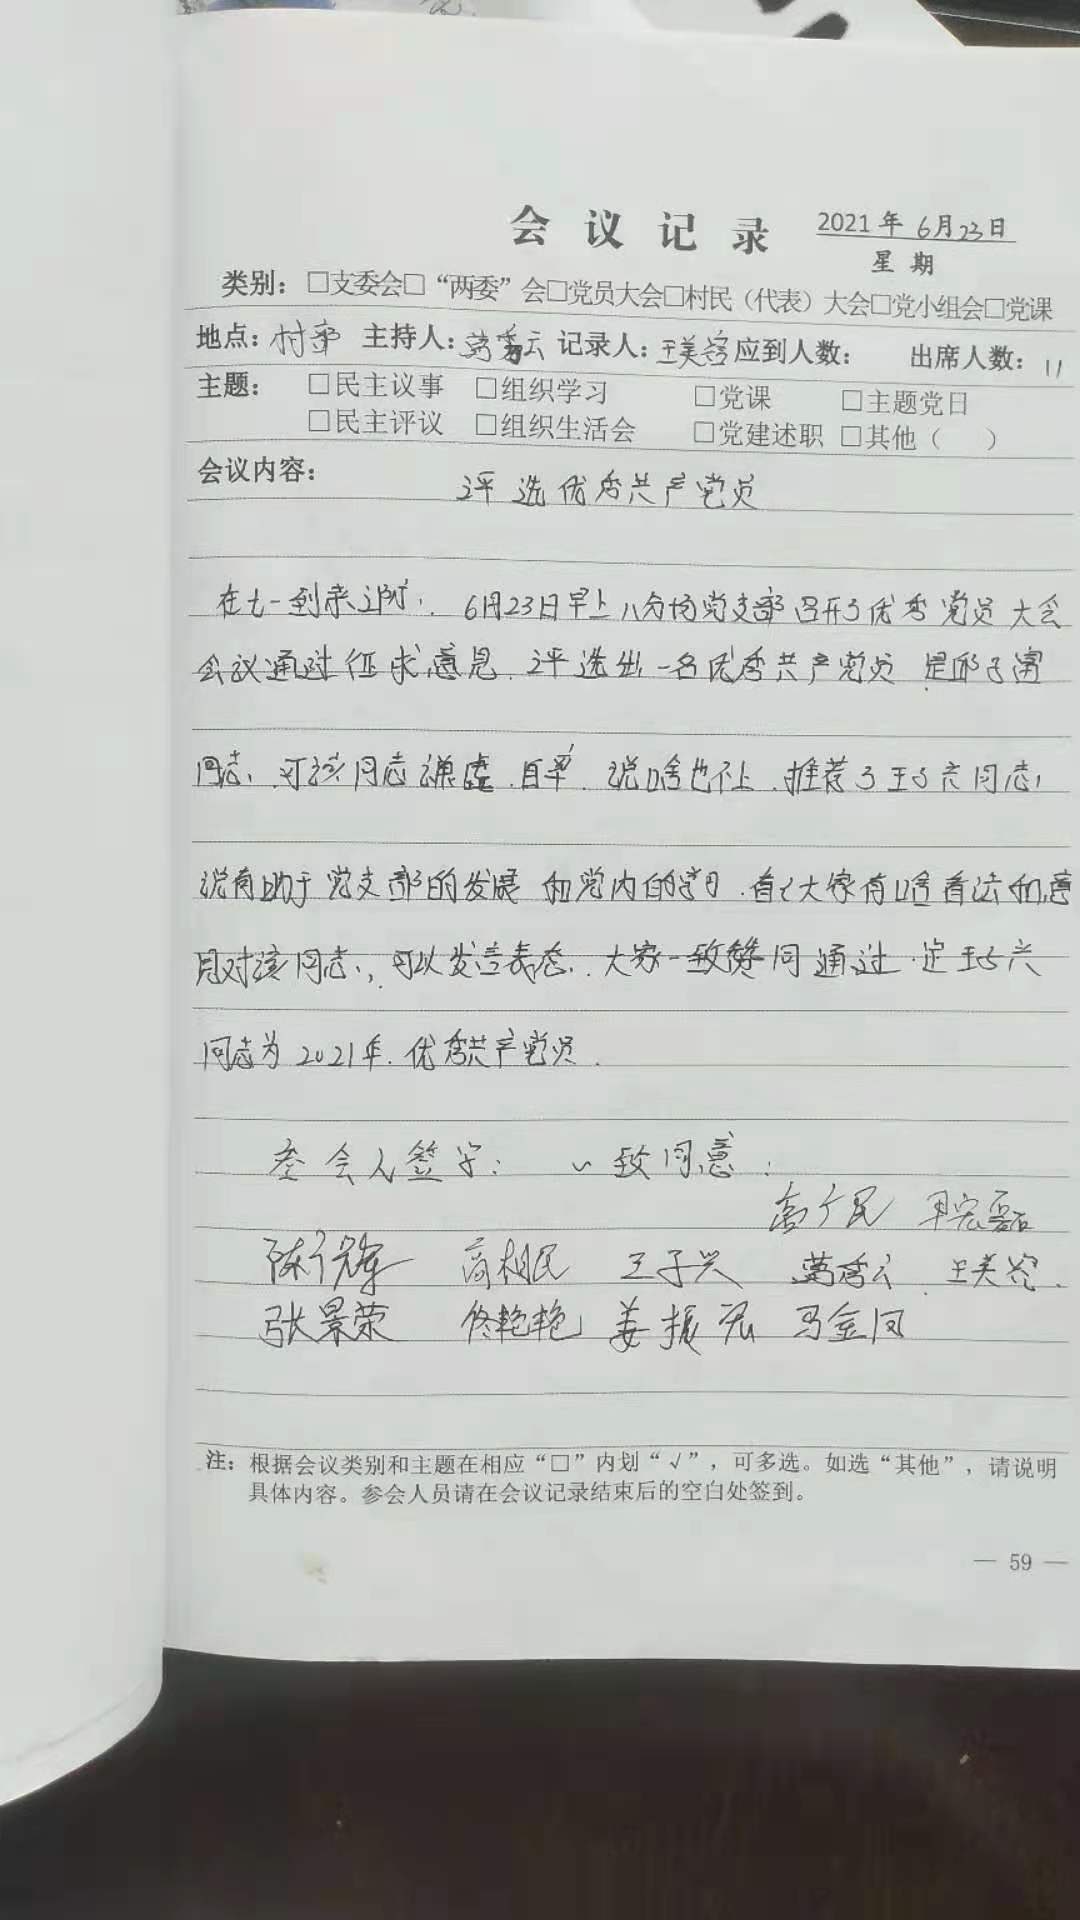 会议记录 2021年6月23日
星期
类别：□支委会□“两委”会□党员大会□村民（代表）大会□党小组会□党课
地点：村部 主持人：葛秀云 记录人：王美容 应到人数： 出席人数：11
主题： □民主议事 □组织学习 □党课 □主题党日
□民主评议 □组织生活会 □党建述职 □其他（ ）
会议内容：
评选优秀共产党员
在七一到来之际，6月23日早上八分场党支部召开了优秀党员大会
会议通过征求意见，评选出一名优秀共产党员 是
同志，可该同志谦虚，自卑，说啥也不上，推荐了王子六同志，
说有助于党支部的发展和党内的学习，看看大家有啥看法和意
见对该同志，可以发言表态，大家一致赞同通过，定王子六
同志为2021年优秀共产党员.
参会人签字： 一致同意：
高广民
陈广辉 高相民 王子兴 葛秀云 王美容
张景荣 佟艳艳 姜振宏 马金凤
注：根据会议类别和主题在相应“□”内划“√”，可多选。如选“其他”，请说明
具体内容。参会人员请在会议记录结束后的空白处签到。
— 59 —